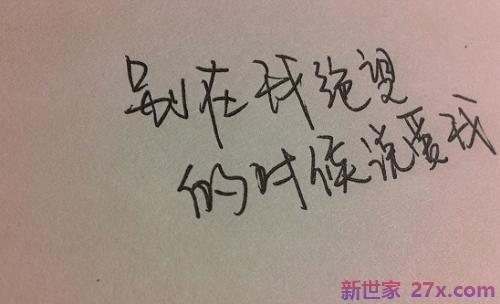 别在我绝望
的时候说爱我
新世家 27x.com